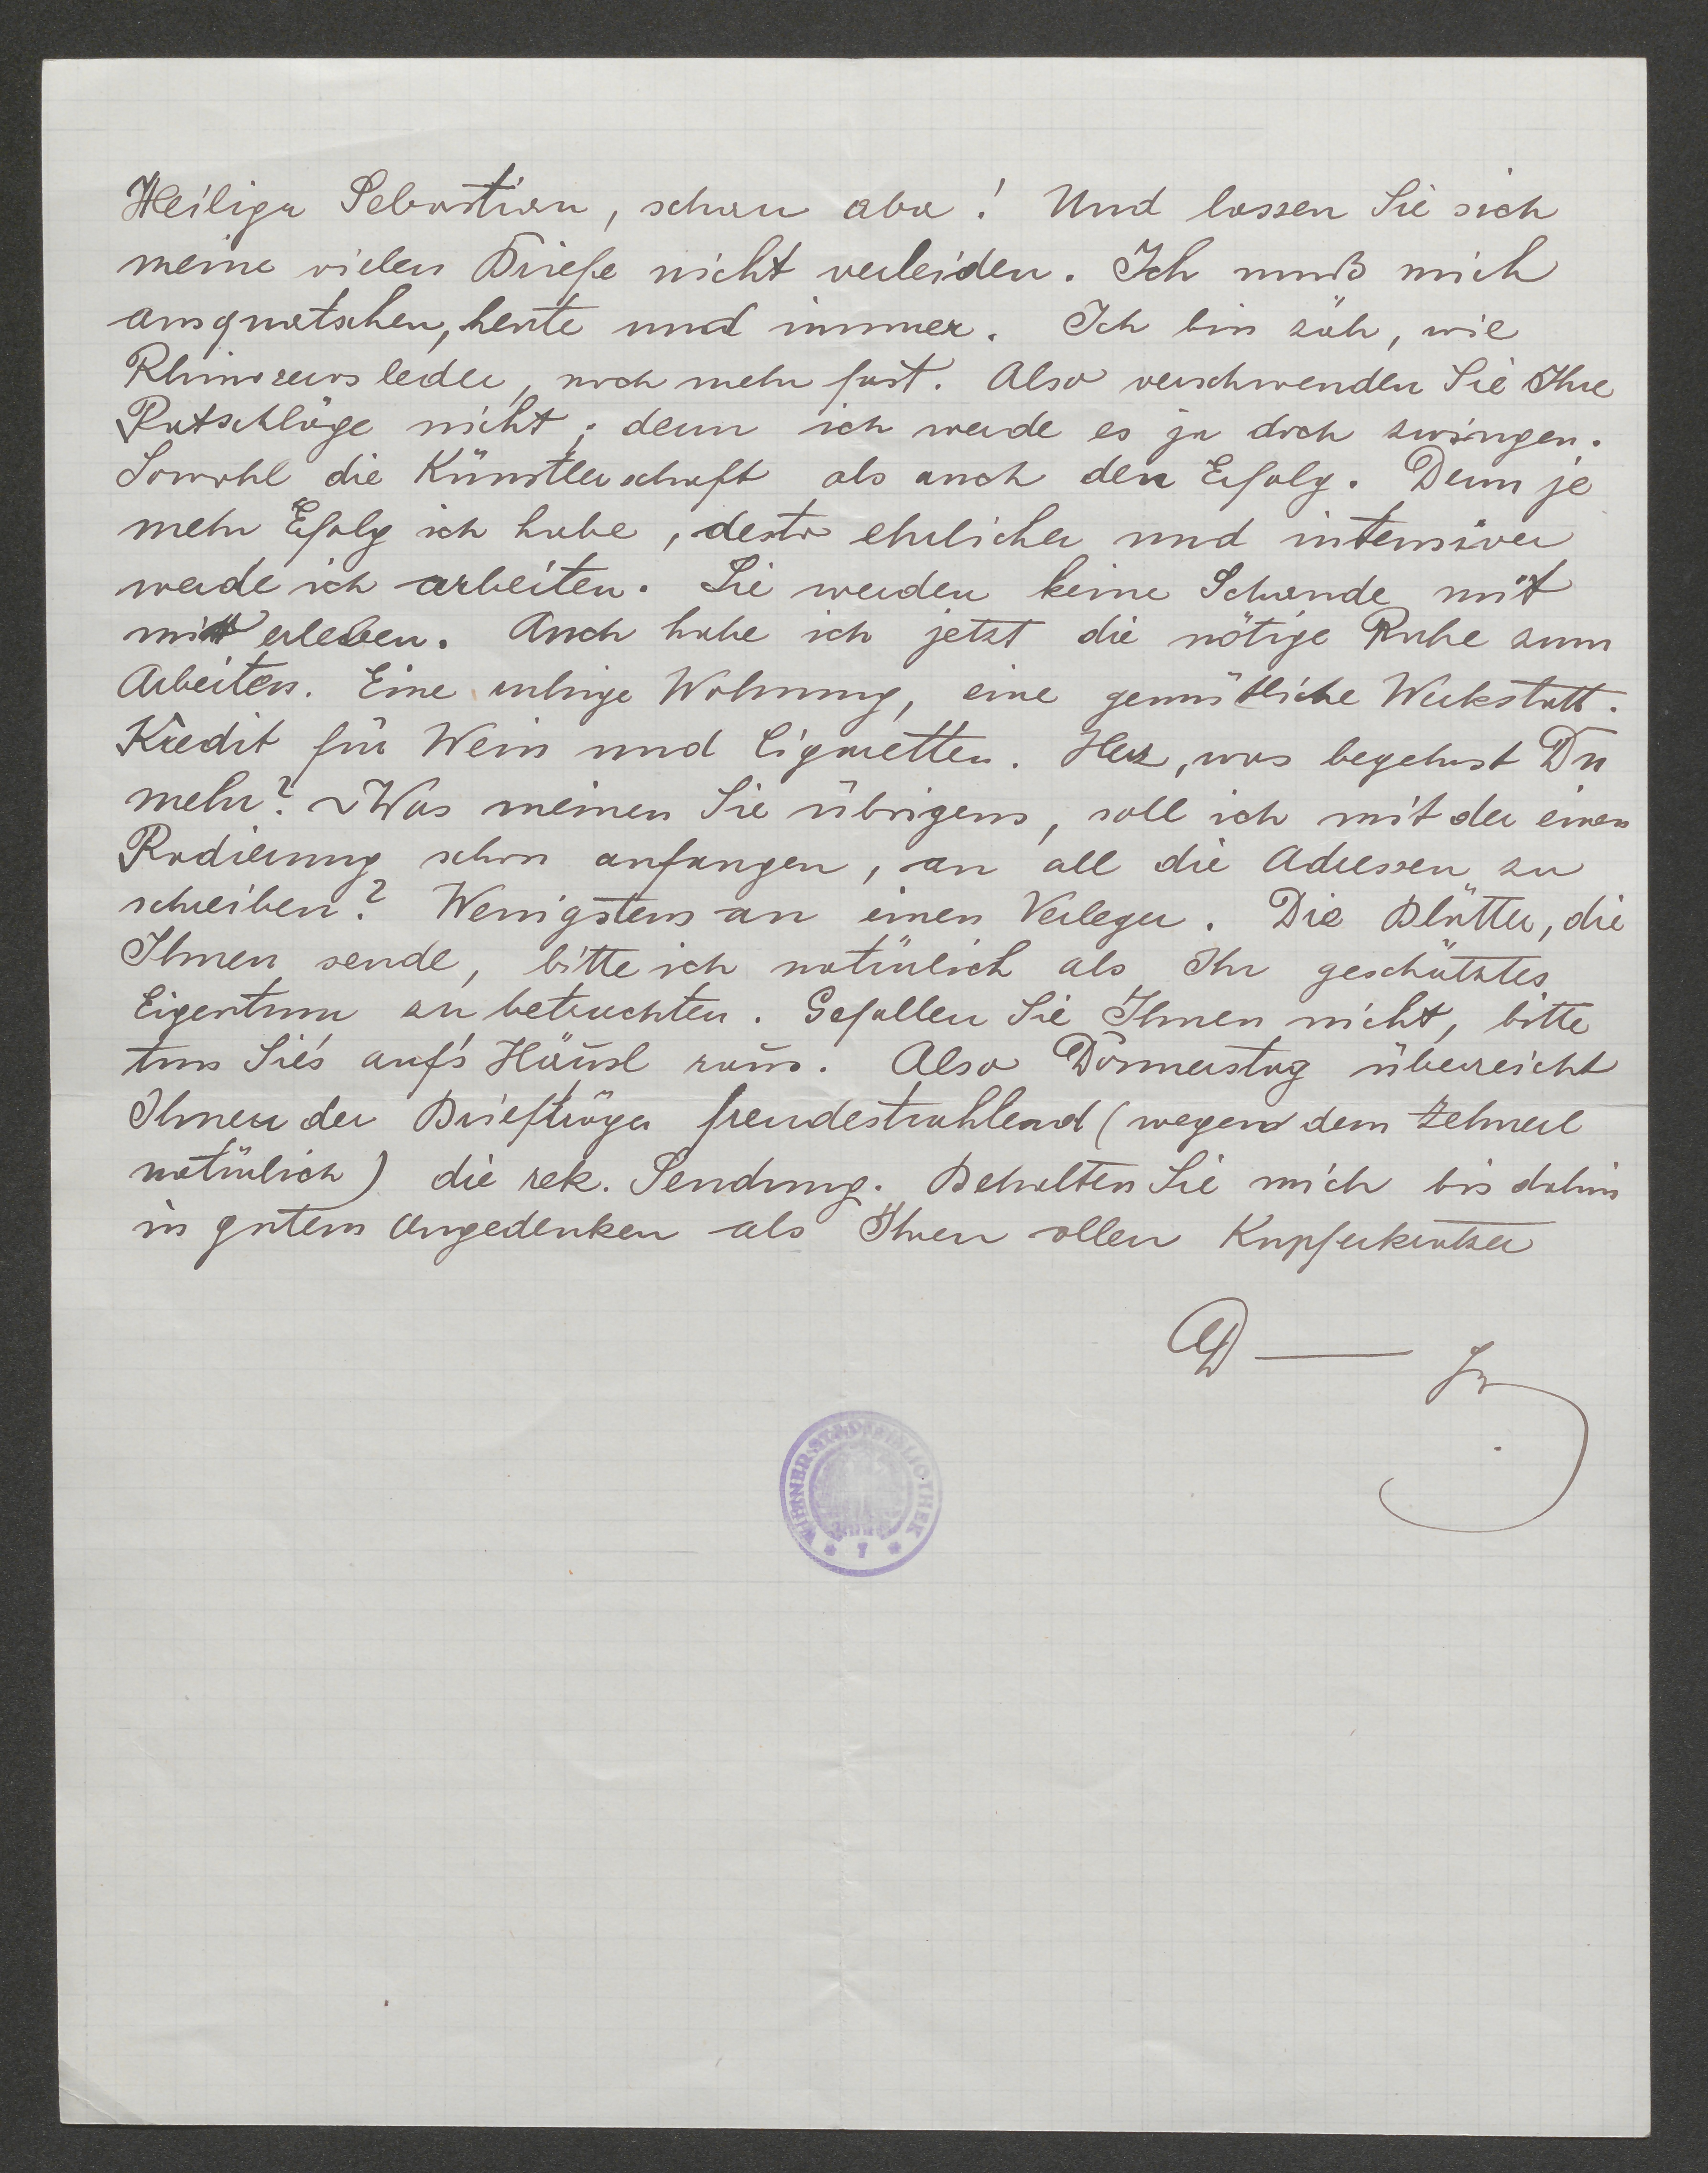 Heiliger Sebastian, schau aba! Und lassen Sie sich
meine vielen Briefe nicht verleiden. Ich muß mich
ausquatschen, heute und immer. Ich bin zäh, wie
Rhinozerosleder, noch mehr fast. Also verschwenden Sie Ihre
Ratschläge nicht; denn ich werde es ja doch zwingen.
Sowohl die Künstlerschaft als auch den Erfolg. Denn je
mehr Erfolg ich habe, desto ehrlicher und intensiver
werde ich arbeiten. Sie werden keine Schande mit
mir erleben. Auch habe ich jetzt die nötige Ruhe zum
Arbeiten. Eine ruhige Wohnung, eine gemütliche Werkstatt.
Kredit für Wein und Cigaretten. Herz, was begehrst Du
mehr? ~ Was meinen Sie übrigens, soll ich mit der einen
Radierung schon anfangen, an all die Adressen zu
schreiben? Wenigstens an einen Verleger. Die Blätter, die
Ihnen sende, bitte ich natürlich als Ihr geschätztes
Eigentum zu betrachten. Gefallen Sie Ihnen nicht, bitte
tun Sie's auf's Häusl raus. Also Donnerstag überreicht
Ihnen der Briefträger freudestrahlend (wegen dem Zehnerl
natürlich) die rek. Sendung. Behalten Sie mich bis dahin
in gutem Angedenken als Ihren ollen Kupferkratzer
AD — Jr.
WIENER STADTBIBLIOTHEK
* 1 *